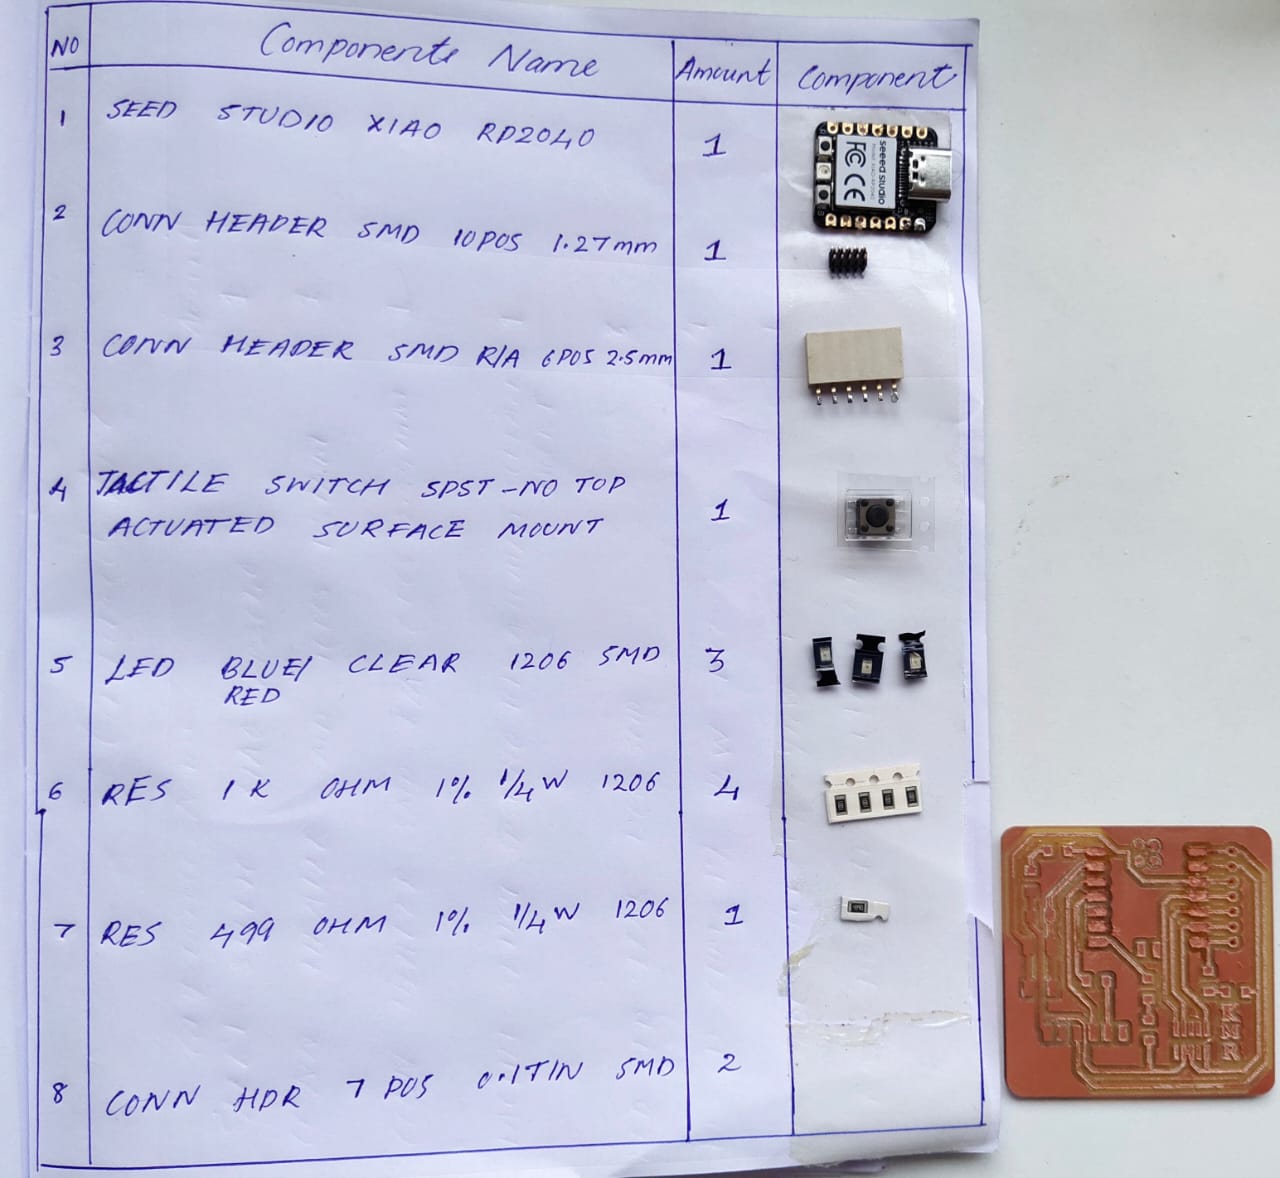 NO Components Name Amount Component
1 SEED STUDIO XIAO RP2040 1
seeed studio
FC CE
2 CONN HEADER SMD 10POS 1.27mm 1
3 CONN HEADER SMD R/A 6POS 2.5mm 1
4 TACTILE SWITCH SPST-NO TOP 1
ACTUATED SURFACE MOUNT
5 LED BLUE/ CLEAR 1206 SMD 3
RED
6 RES 1K OHM 1% 1/4W 1206 4
7 RES 499 OHM 1% 1/4W 1206 1
8 CONN HDR 7 POS 0.1TIN SMD 2
KNR